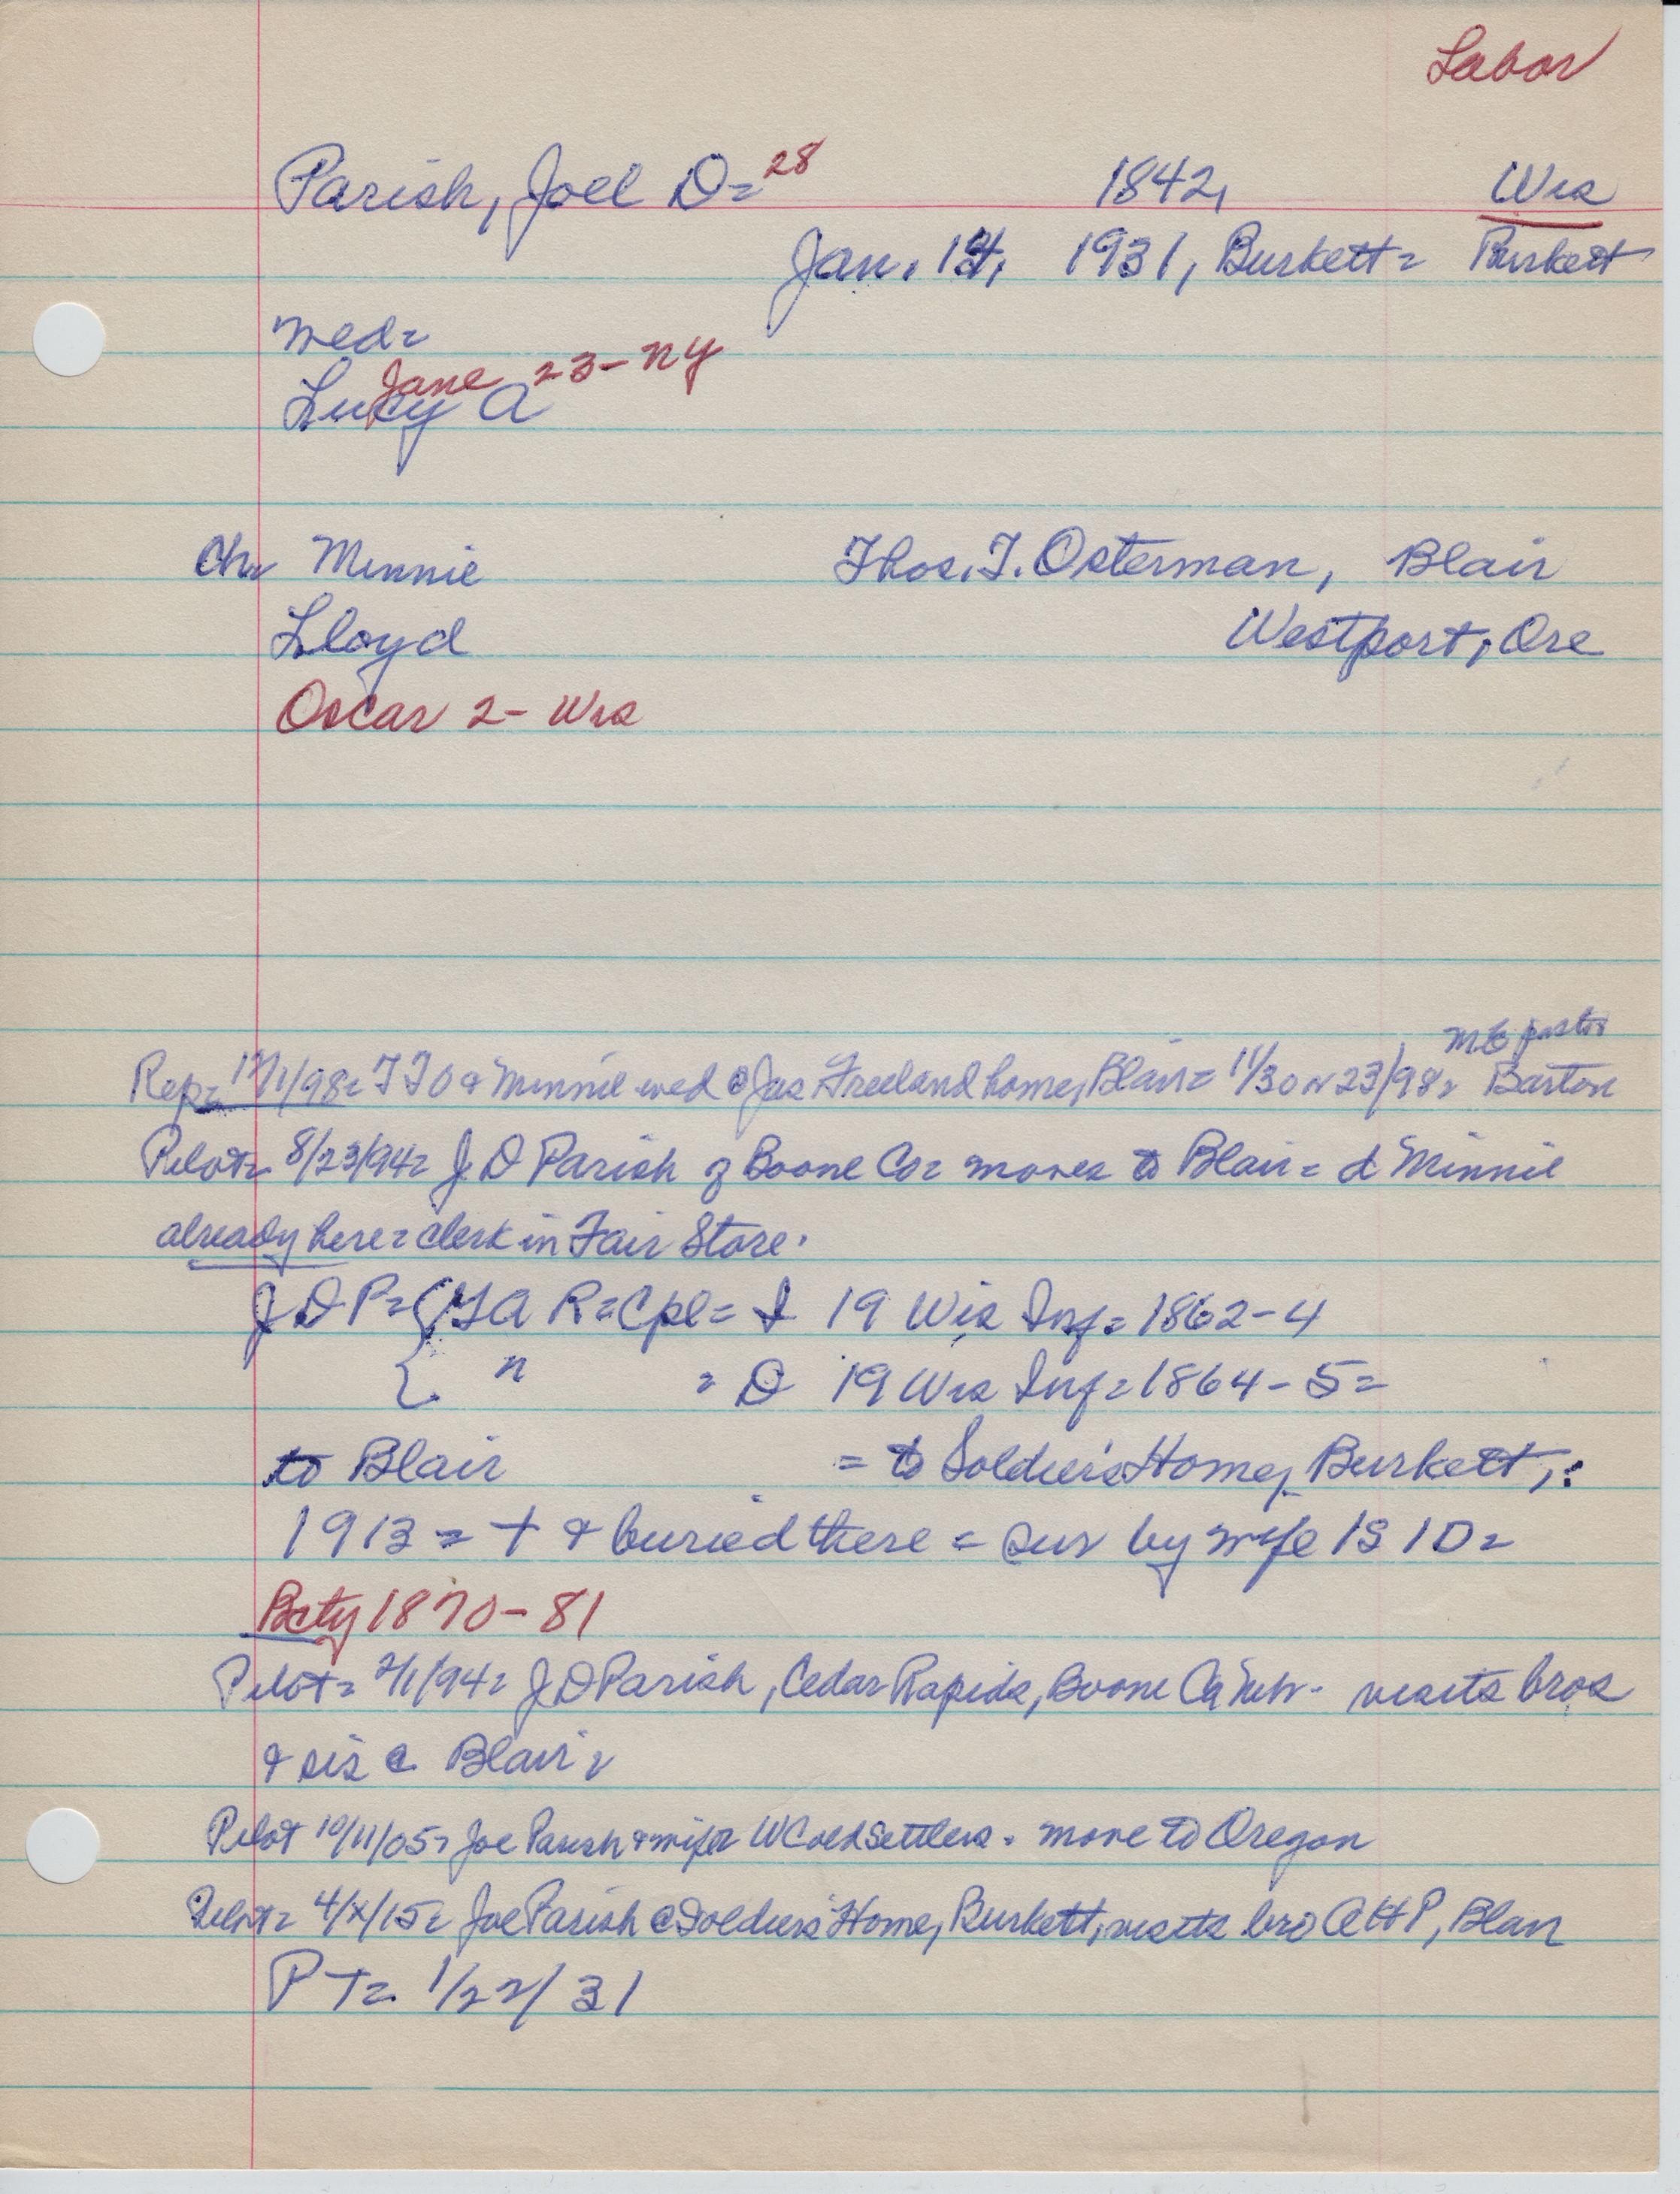 Labor
Parish, Joel D= 28 1842, Wis
Jan. 14, 1931, Burkett= Burkett
wed=
Jane 23-NY
Lucy A
Ch= Minnie Thos. T. Osterman, Blair
Lloyd Westport, Ore
Oscar 2- Wis
ME pastor
Rep= 12/1/98= TTO & Minnie wed @ Jas Freeland home, Blair= 11/30 or 23/98= Barton
Pilot= 8/23/94= J D Parish of Boone Co= moves to Blair= d Minnie
already here= clerk in Fair Store.
J D P= { GAR= Cpl= I 19 Wis Inf= 1862-4
{ " = D 19 Wis Inf= 1864-5=
to Blair = to Soldier's Home, Burkett,:
1913= + & buried there = sur by wife 1S 1D=
Bcty 1870-81
Pilot= 2/1/94= J D Parish, Cedar Rapids, Boone Co Neb- visits bros
& sis @ Blair=
Pilot 10/11/05= Joe Parish & wife= WC old settlers. move to Oregon
Pilot= 4/x/15= Joe Parish @ Soldiers' Home, Burkett, visits bro AHP, Blair
PT= 1/22/31